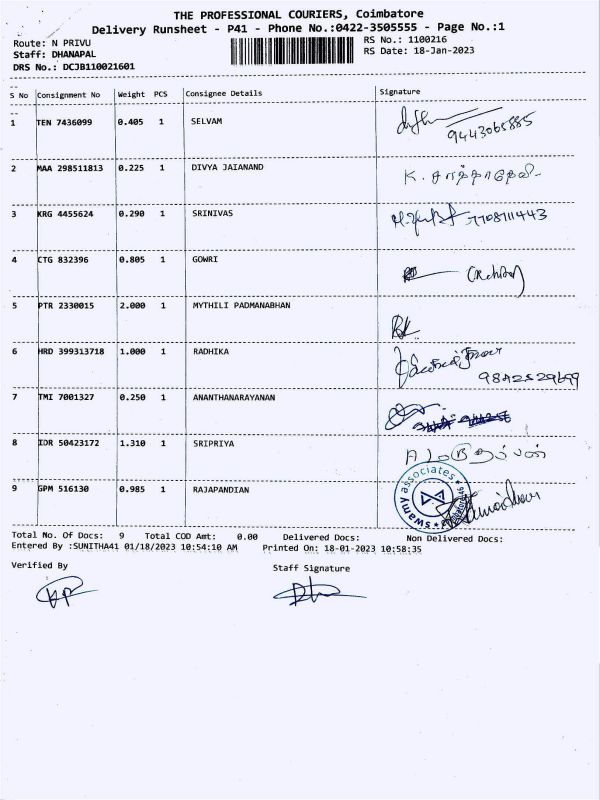 THE PROFESSIONAL COURIERS, Coimbatore
Delivery Runsheet - P41 - Phone No.:0422-3505555 - Page No.:1
Route: N PRIVU RS No.: 1100216
Staff: DHANAPAL RS Date: 18-Jan-2023
DRS No.: DCJB110021601
S No Consignment No Weight PCS Consignee Details Signature
1 TEN 7436099 0.405 1 SELVAM
9443065885
2 MAA 298511813 0.225 1 DIVYA JAIANAND K.
3 KRG 4455624 0.290 1 SRINIVAS 7708711443
4 CTG 832396 0.805 1 GOWRI
5 PTR 2330015 2.000 1 MYTHILI PADMANABHAN
6 HRD 399313718 1.000 1 RADHIKA
9842529699
7 TMI 7001327 0.250 1 ANANTHANARAYANAN
8 IDR 50423172 1.310 1 SRIPRIYA
swamy associates
9 GPM 516130 0.985 1 RAJAPANDIAN
Total No. Of Docs: 9 Total COD Amt: 0.00 Delivered Docs: Non Delivered Docs:
Entered By :SUNITHA41 01/18/2023 10:54:10 AM Printed On: 18-01-2023 10:58:35
Verified By Staff Signature